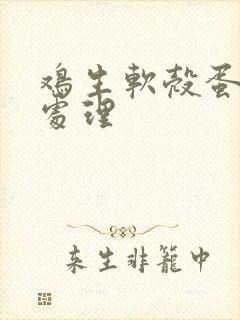 鸡生軟殼蛋
處理
来生非籠中